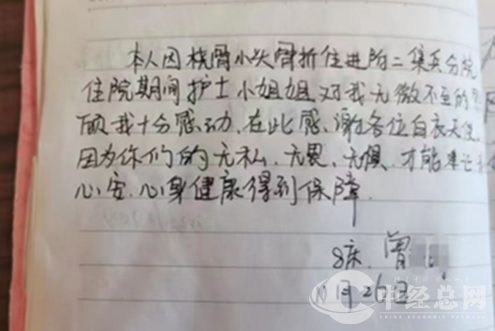 本人因桡骨小头骨折住进附二集美分院
住院期间护士小姐姐对我无微不至的
顾我十分感动.在此感谢各位白衣天使
因为你们的无私.无畏.无惧.才能
心安.心身健康得到保障.
8床.曾
1月26日
中经总网